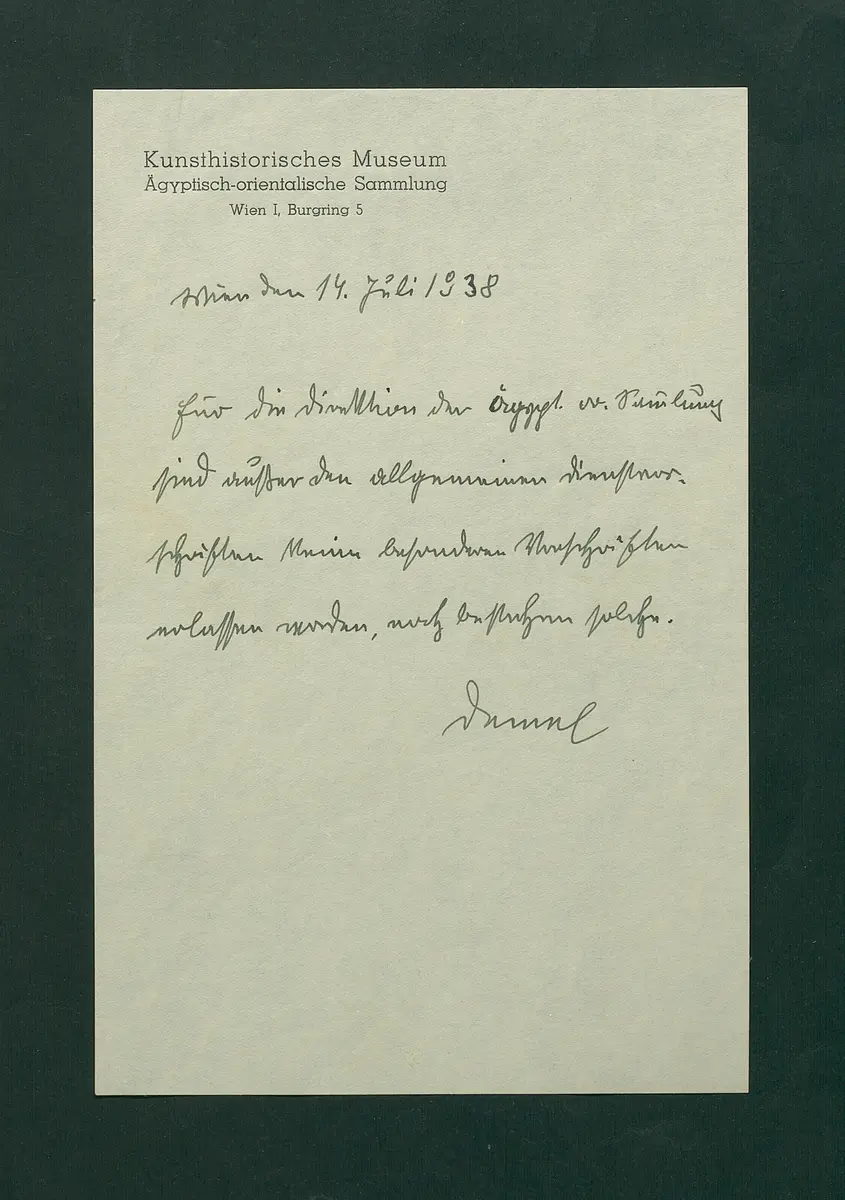 Kunsthistorisches Museum
Ägyptisch-orientalische Sammlung
Wien I, Burgring 5
Wien den 14. Juli 1938
Für die Direktion der Ägypt. or. Sam̄lung
sind außer den allgemeinen Dienstvor-
schriften keine besonderen Vorschriften
erlassen worden, noch bestehen solche.
Demel